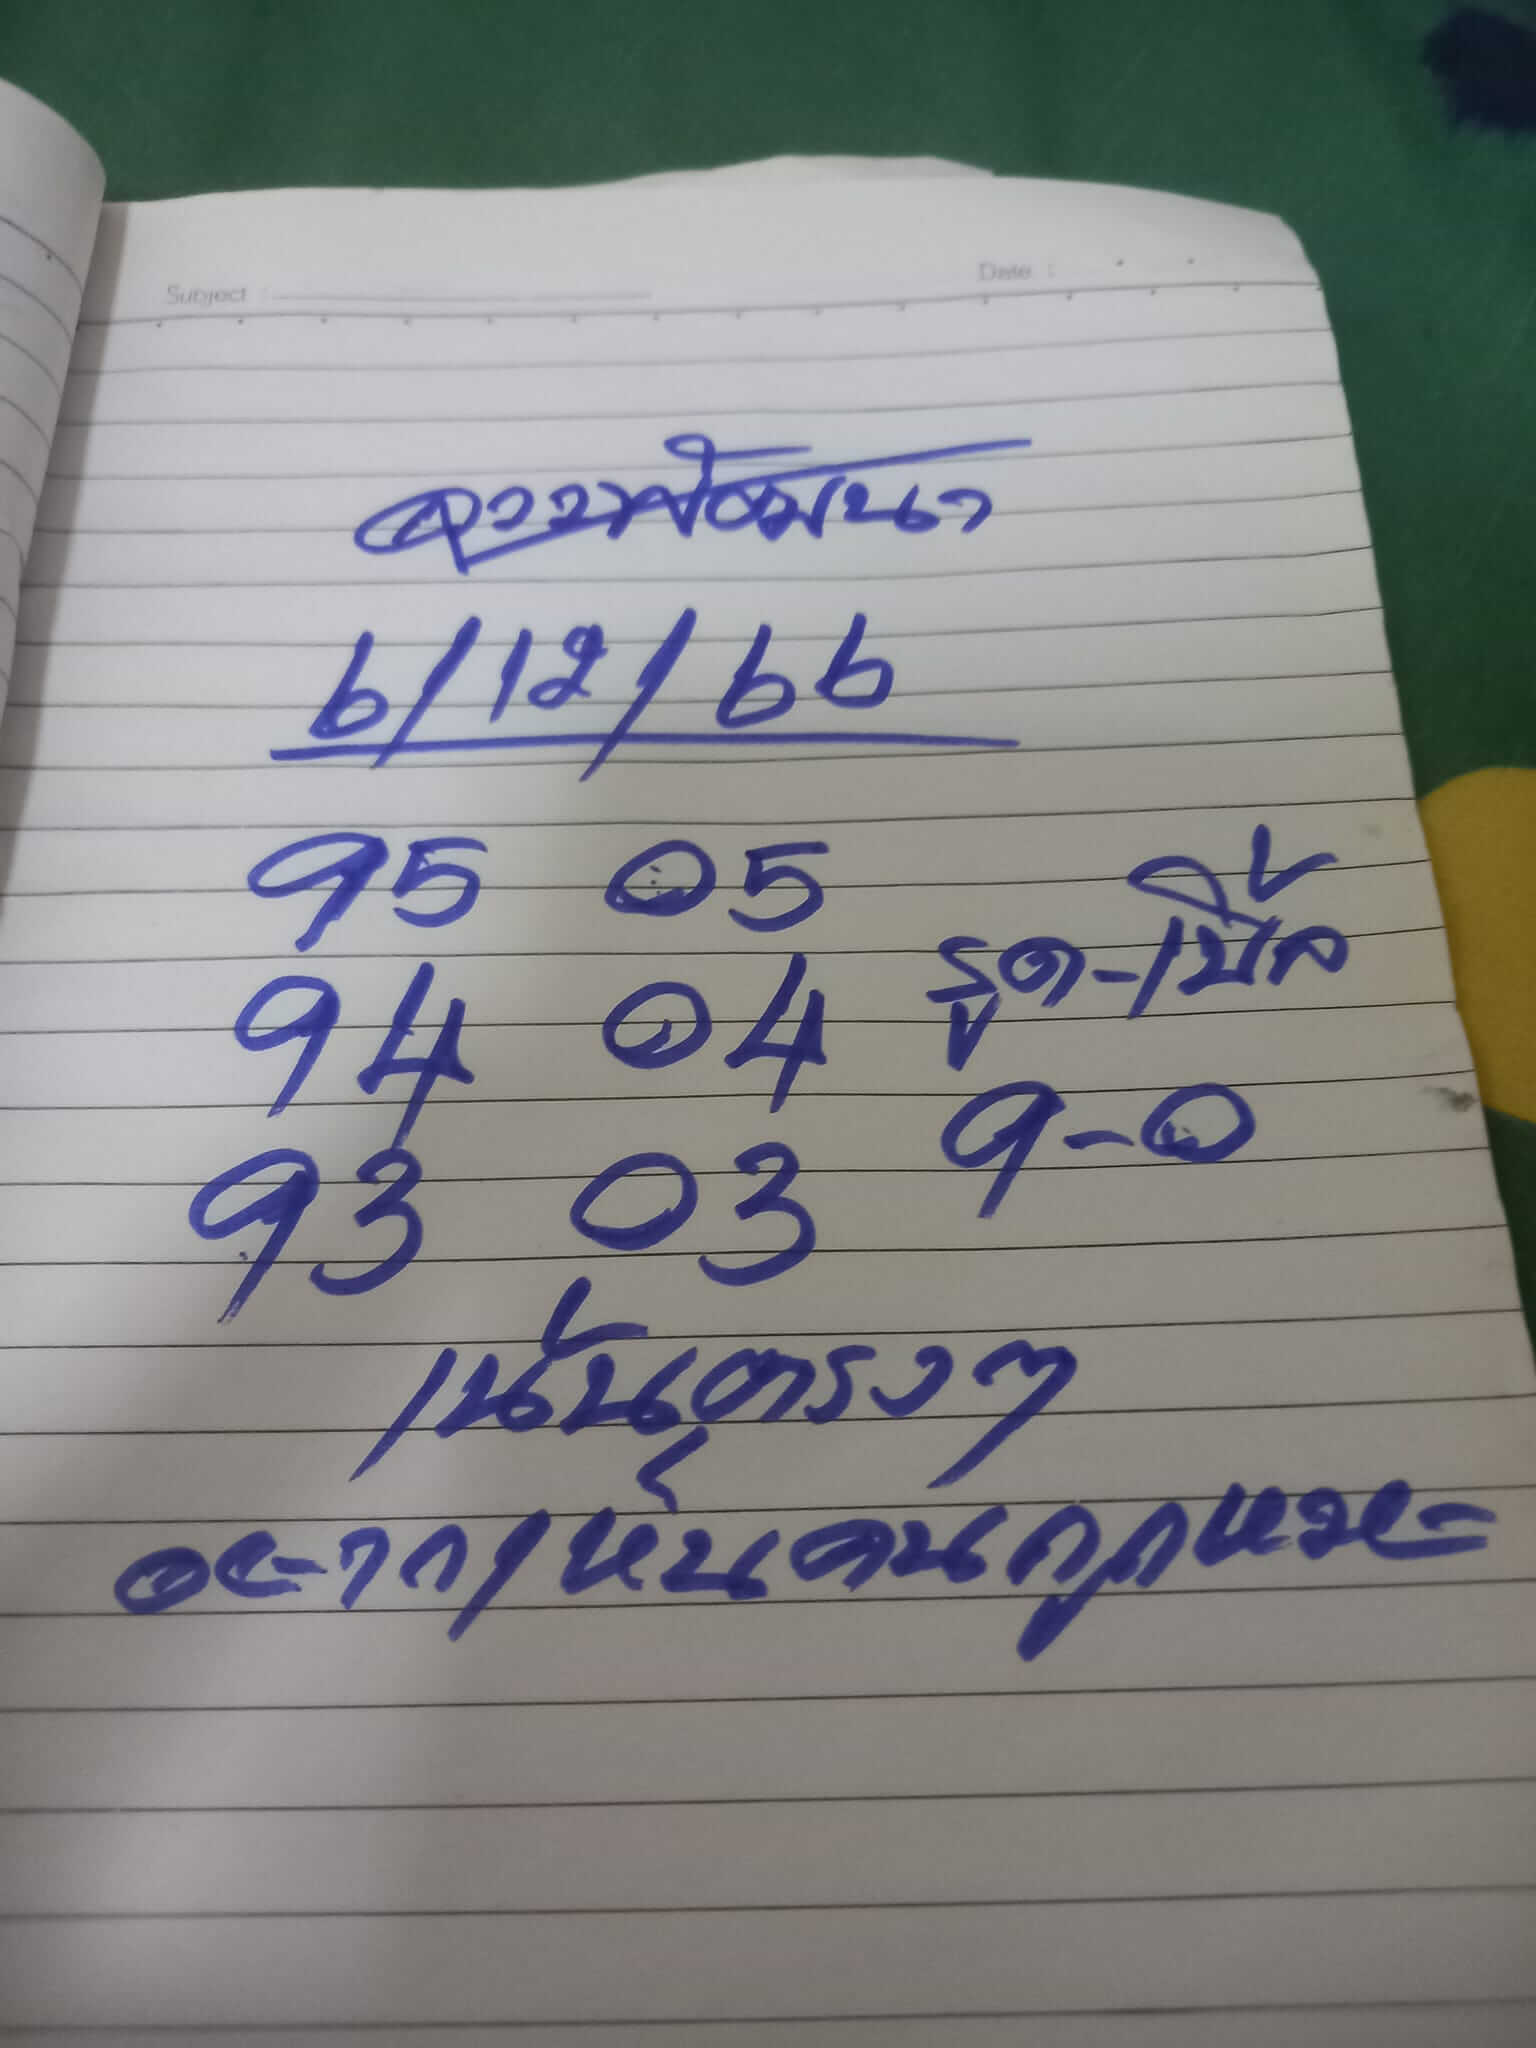 Subject :
Date :
ลาวพัฒนา
6/12/66
95 05
94 04
รูด-เบิ้ล
93 03
9-0
เน้นตรงๆ
อยากเห็นคนถูกหวย